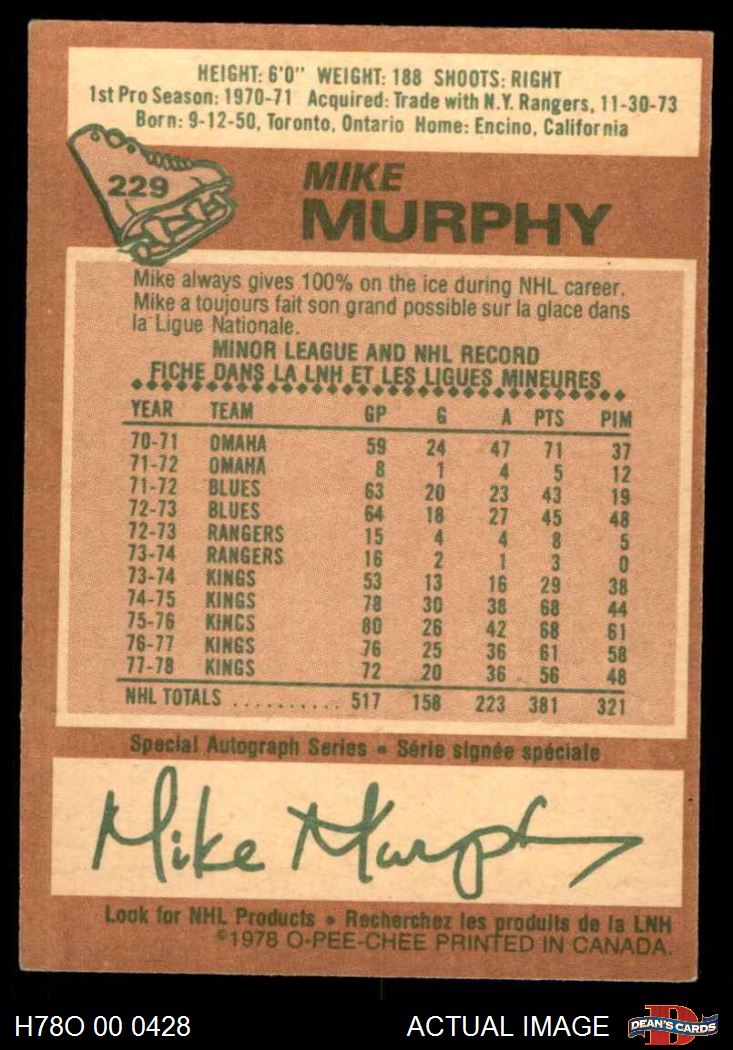 HEIGHT: 6'0" WEIGHT: 188 SHOOTS: RIGHT
1st Pro Season: 1970-71 Acquired: Trade with N.Y. Rangers, 11-30-73
Born: 9-12-50, Toronto, Ontario Home: Encino, California
229
MIKE
MURPHY
Mike always gives 100% on the ice during NHL career.
Mike a toujours fait son grand possible sur la glace dans
la Ligue Nationale.
MINOR LEAGUE AND NHL RECORD
FICHE DANS LA LNH ET LES LIGUES MINEURES
YEAR TEAM GP G A PTS PIM
70-71 OMAHA 59 24 47 71 37
71-72 OMAHA 8 1 4 5 12
71-72 BLUES 63 20 23 43 19
72-73 BLUES 64 18 27 45 48
72-73 RANGERS 15 4 4 8 5
73-74 RANGERS 16 2 1 3 0
73-74 KINGS 53 13 16 29 38
74-75 KINGS 78 30 38 68 44
75-76 KINGS 80 26 42 68 61
76-77 KINGS 76 25 36 61 58
77-78 KINGS 72 20 36 56 48
NHL TOTALS .......... 517 158 223 381 321
Special Autograph Series • Série signée spéciale
Mike Murphy
Look for NHL Products • Recherchez les produits de la LNH
©1978 O-PEE-CHEE PRINTED IN CANADA.
H78O 00 0428 ACTUAL IMAGE D DEAN'S CARDS